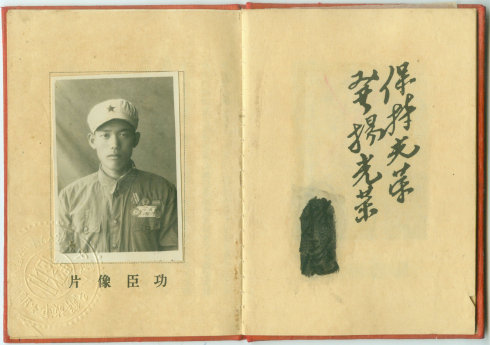 功臣像片
保持光荣
發揚光荣